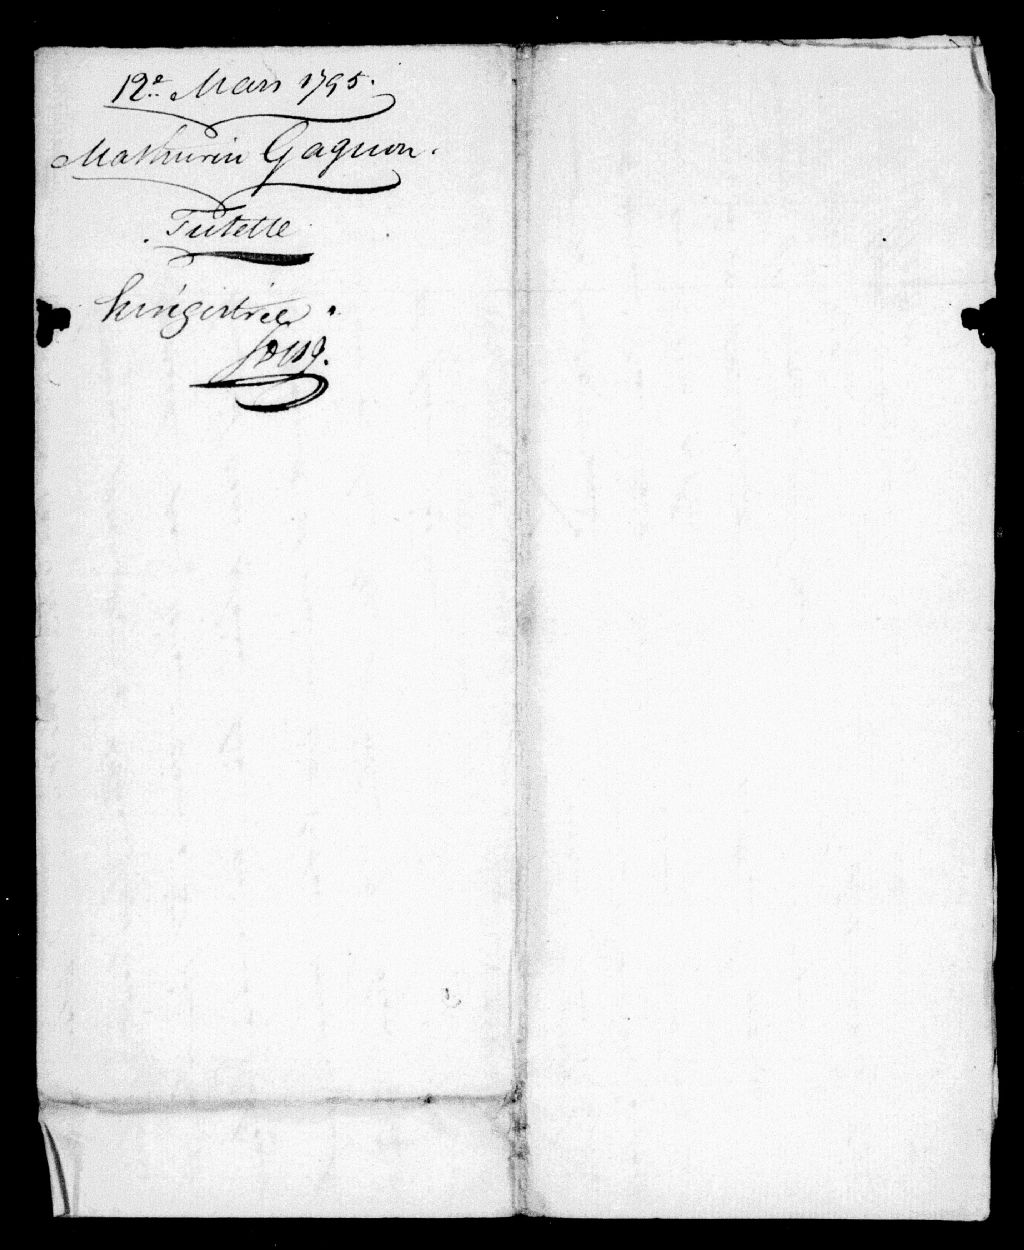 12e. Mars 1795.
Mathurin Gagnon.
Tutelle
Enrégistrée.